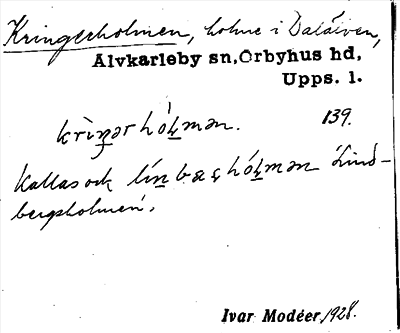 Kringerholmen, holme i Dalälven,
Älvkarleby sn, Örbyhus hd,
Upps. l.
krìŋərhólmən. 139.
Kallas ock línbæshólmən 'Lind-
bergsholmen'.
Ivar Modéer, 1928.